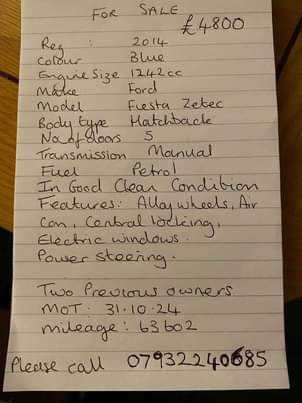 FOR SALE
£4800
Reg : 2014
Colour Blue
Engine Size 1242cc
Make Ford
Model Fiesta Zetec
Body type Hatchback
No of doors 5
Transmission Manual
Fuel Petrol
In Good Clean Condition
Features: Alloy wheels, Air
Con, Central locking,
Electric windows.
Power steering.
Two Previous owners
MOT: 31.10.24
mileage: 63602
Please call 07932240685